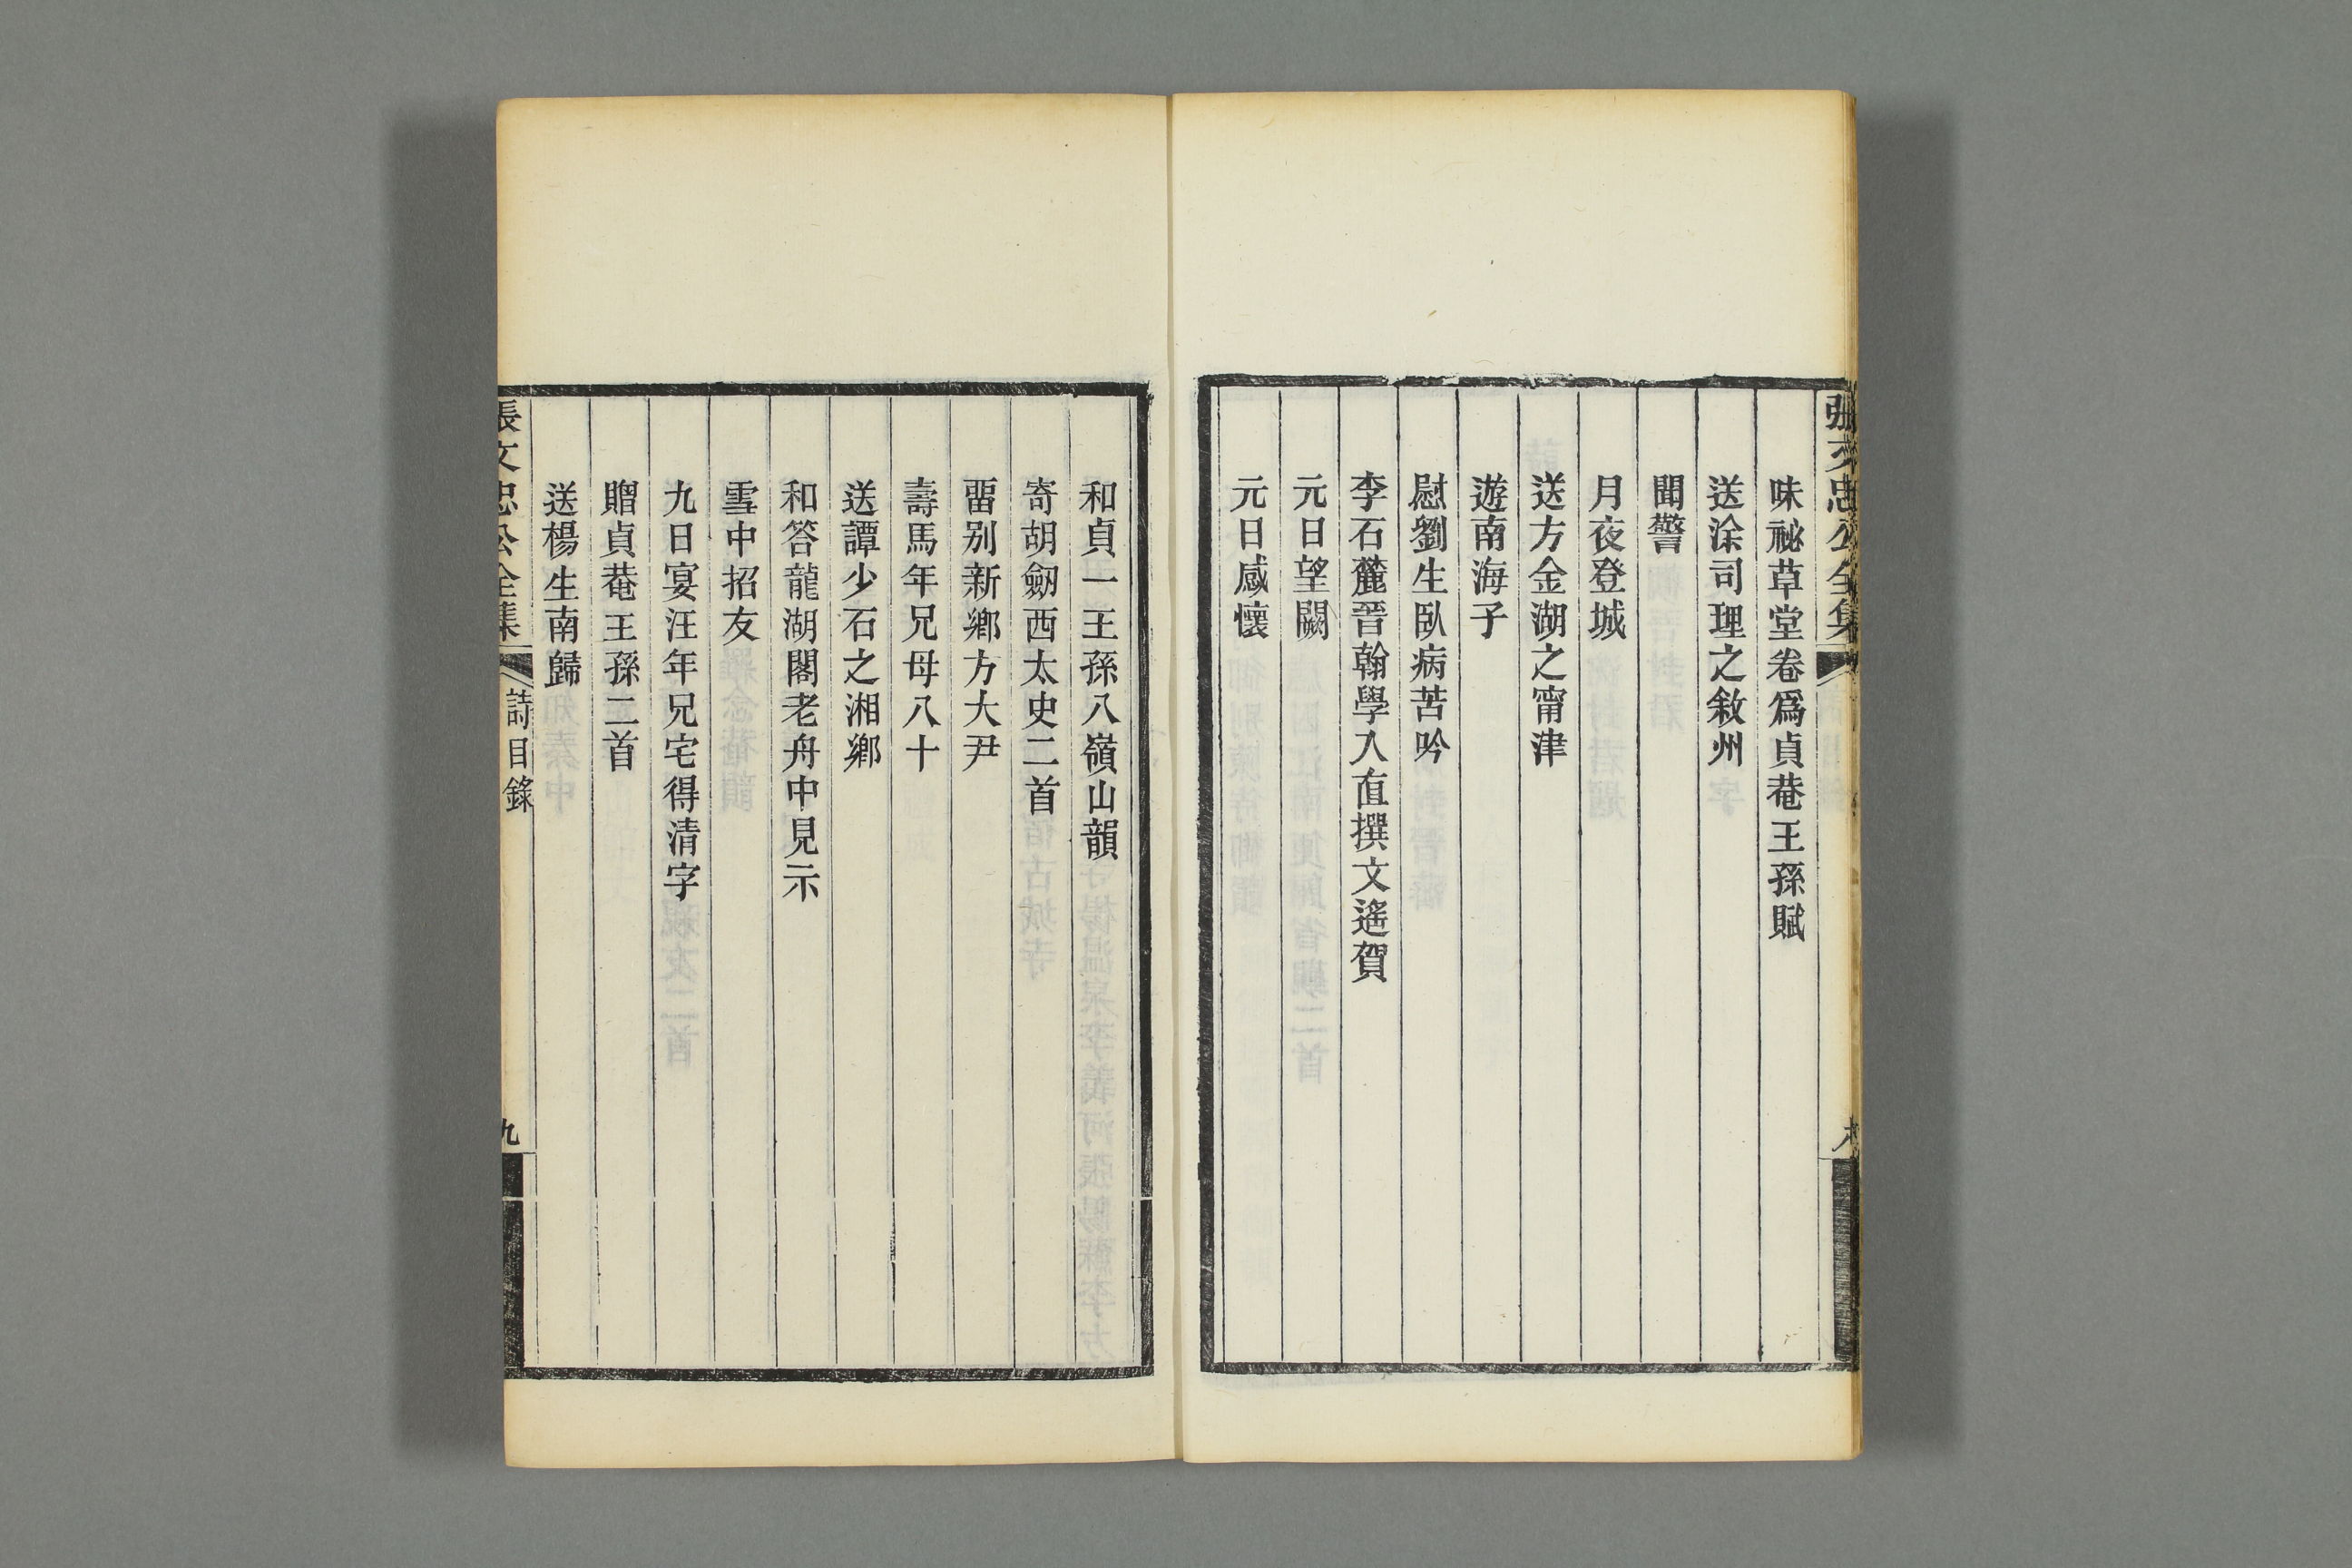 張文忠公全集
味祕草堂卷爲貞菴王孫賦
送涂司理之敘州
聞警
月夜登城
送方金湖之甯津
遊南海子
慰劉生臥病苦吟
李石麓晉翰學入直撰文遙賀
元日望闕
元日感懷
和貞一王孫八嶺山韻
寄胡劒西太史二首
畱別新鄉方大尹
壽馬年兄母八十
送譚少石之湘鄉
和答龍湖閣老舟中見示
雪中招友
九日宴汪年兄宅得清字
贈貞菴王孫二首
送楊生南歸
張文忠公全集 詩目錄 九